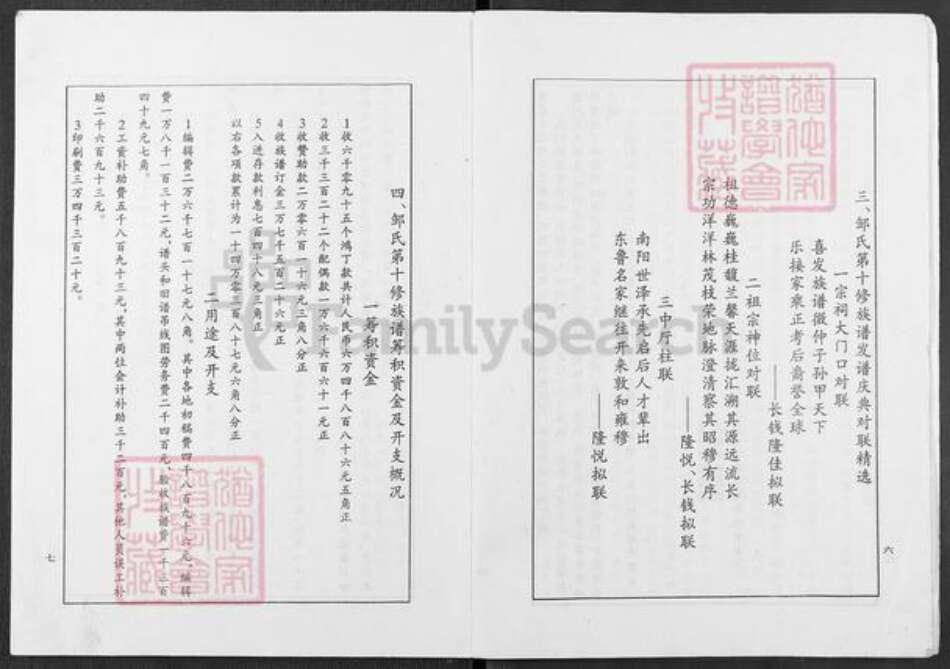 三、邹氏第十修族谱发谱庆典对联精选
一宗祠大门口对联
喜发族谱微仲子孙甲天下
乐接家乘正考后裔誉全球
——长钱隆佳拟联
二祖宗神位对联
祖德巍巍桂馥兰馨天涯拢汇溯其源远流长
宗功洋洋林茂枝荣地脉澄清察其昭穆有序
——隆悦、长钱拟联
三中厅柱联
南阳世泽承先启后人才辈出
东鲁名家继往开来敦和雍穆
——隆悦拟联
六
四、邹氏第十修族谱筹积资金及开支概况
一筹积资金
1收六千零九十五个鸿丁款共计人民币六万四千八百八十六元五角正
2收三千三百二十二个配偶款一万六千六百六十一元正
3收赞助款二万零六百一十六元三角八分正
4收族谱订金三万七千五百二十六元正
5入进存款利息七百四十八元三角正
以右各项款累计为一十四万零三百八十七元六角八分正
二用途及开支
1编辑费二万六千七百一十七元八角。其中各地初稿费四千八百九十六元，编辑
费一万八千一百三十二元，谱头和旧谱吊线图劳务费二千四百元，验收族谱费一千三百
四十九元七角。
2工资补助费五千八百九十三元，其中两位会计补助三千二百元，其他人员误工补
助二千六百九十三元。
3印刷费三万四千三百二十元。
七
FamilySearch